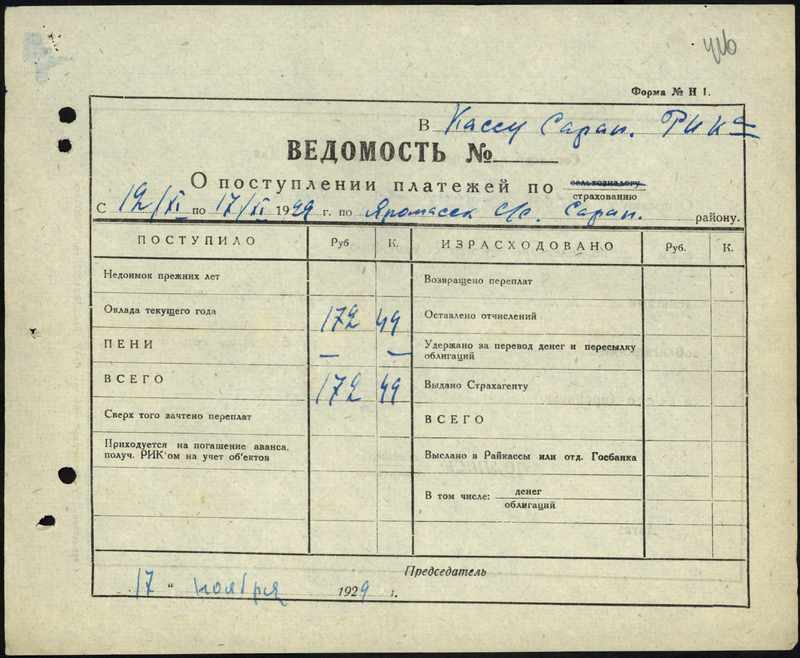 416
Форма № Н 1.
В Кассу Сарап. РИКа
ВЕДОМОСТЬ №
О поступлении платежей по сельхозналогу страхованию
С 12/XI по 17/XI 1929 г. по Яромасск с/с. Сарап. району.
ПОСТУПИЛО Руб К. ИЗРАСХОДОВАНО Руб. К.
Недоимок прежних лет Возвращено переплат
Оклада текущего года 172 49 Оставлено отчислений
ПЕНИ — — Удержано за перевод денег и пересылку облигаций
ВСЕГО 172 49 Выдано Страхагенту
Сверх того зачтено переплат ВСЕГО
Приходуется на погашение аванса, Выслано в Райкассы или отд. Госбанка
получ. РИК'ом на учет об'ектов
В том числе: денег
облигаций
Председатель
17 " ноября 1929 г.